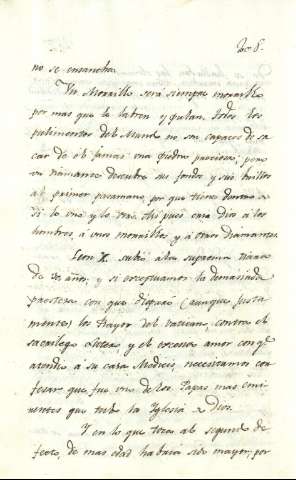 no se ensancha.
Un Morrillo será siempre morrillo
por mas que lo labren y pulan. Todos los
pulimentos del Mundo no son capaces de sa
car de él jamas una piedra preciosa; pero
un diamante descubre sus fondos y sus brillos
al primer pasamano, por que tiene dentro de
si lo uno y lo otro. Asi pues cria Dios á los
hombres á unos morrillos y á otros Diamantes.
Leon X. subió á la suprema
de años; y si exceptuamos la demasiada
con que disparó (aunque justa
mente) los rayos del vaticano, contra el
sacrilego Lutero y el excesivo amor con q.
atendió á su casa Medicis, necesitamos con
fesar que fue uno de los Papas mas emi
nentes que tubo la Yglesia de Dios.
Y en lo que toca al segundo de
fecto, de mas edad habia sido mayor; por